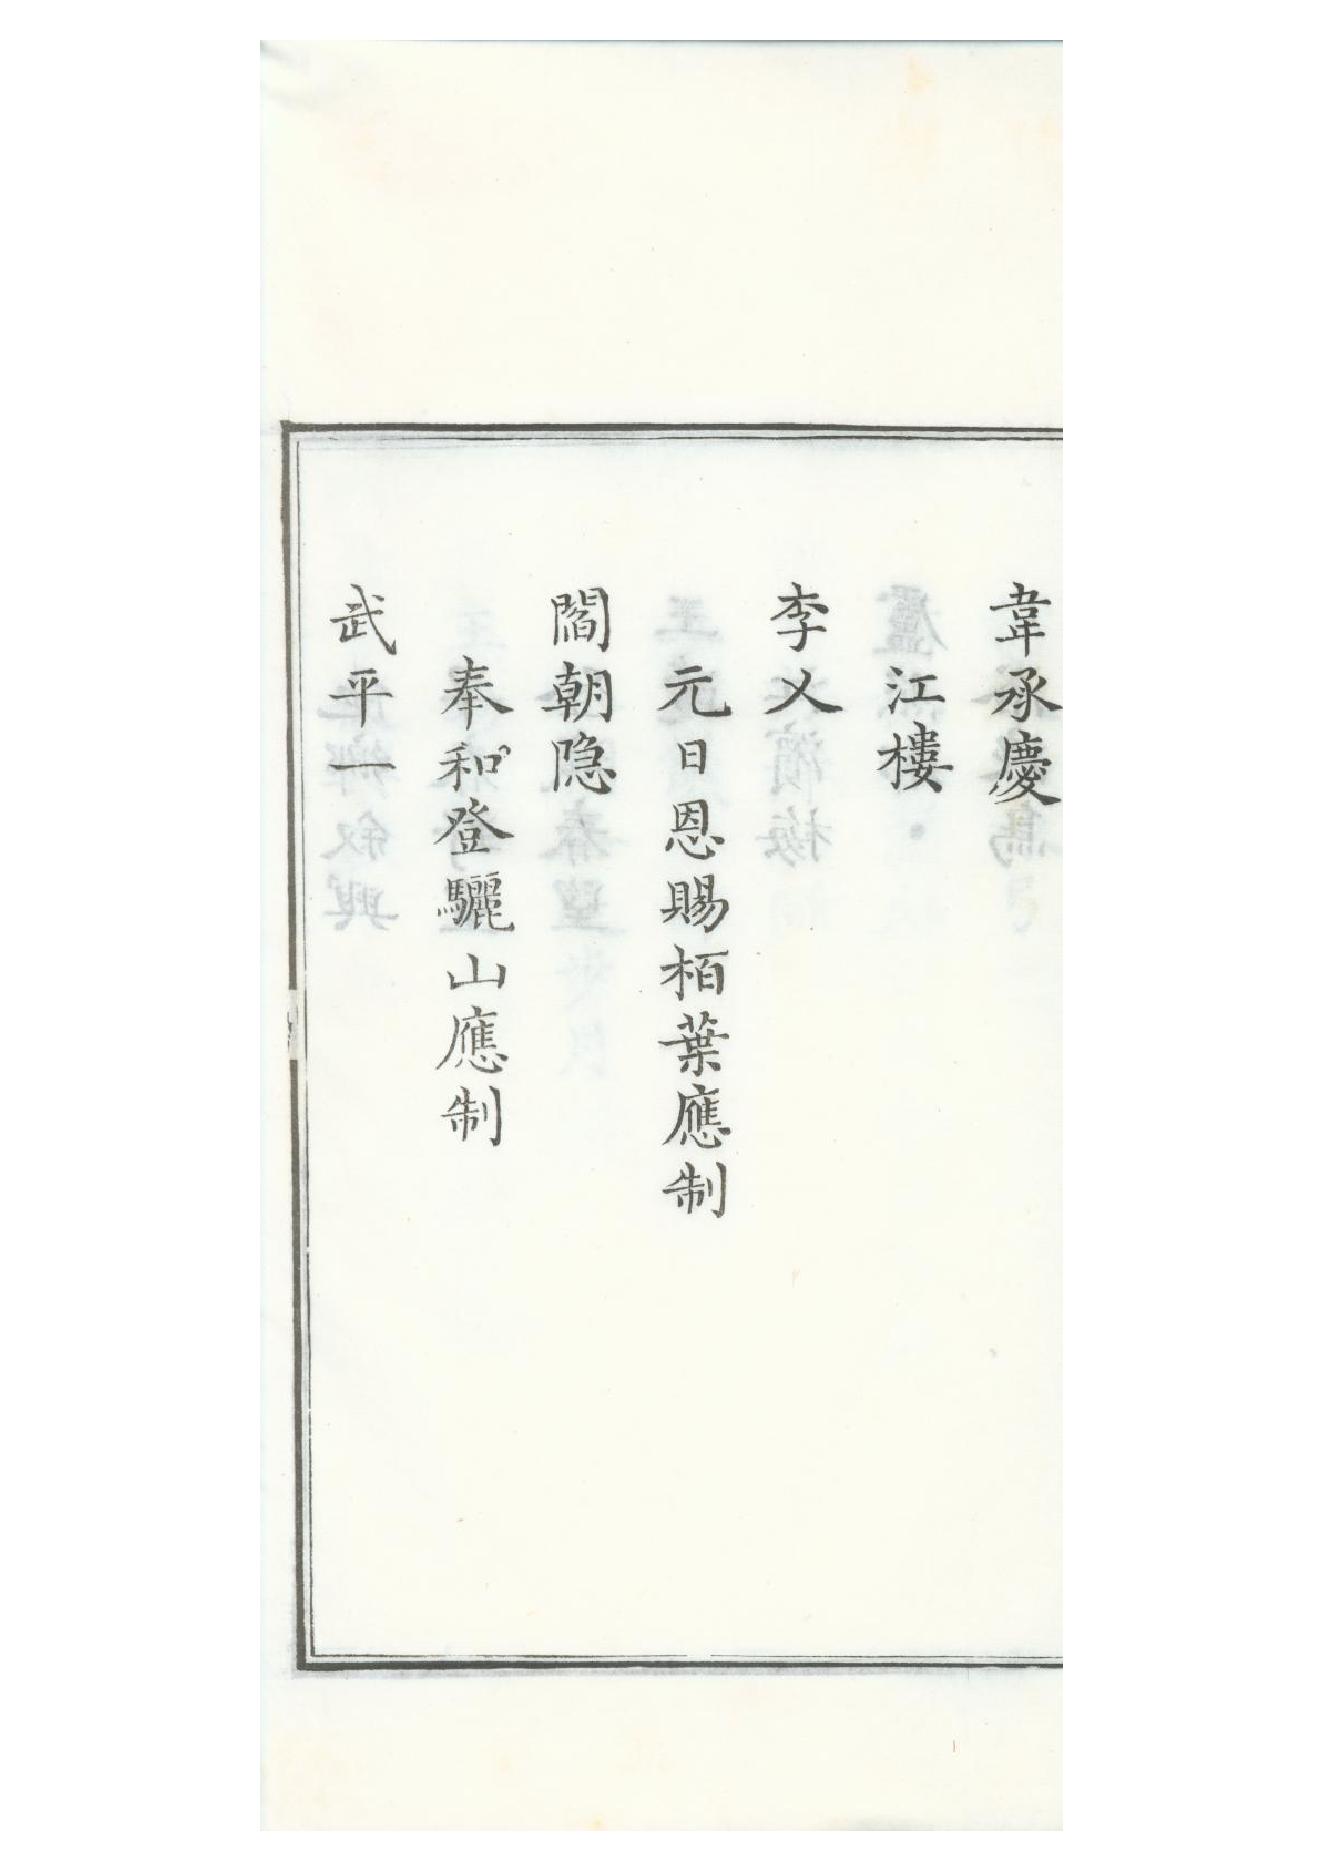 韋承慶
江樓
李乂
元日恩賜栢葉應制
閻朝隐
奉和登驪山應制
武平一